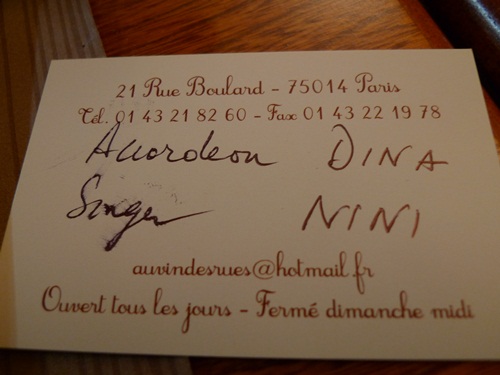 21 Rue Boulard - 75014 Paris
Tél. 01 43 21 82 60 - Fax 01 43 22 19 78
Accordeon DINA
Singer NINI
auvindesrues@hotmail.fr
Ouvert tous les jours - Fermé dimanche midi